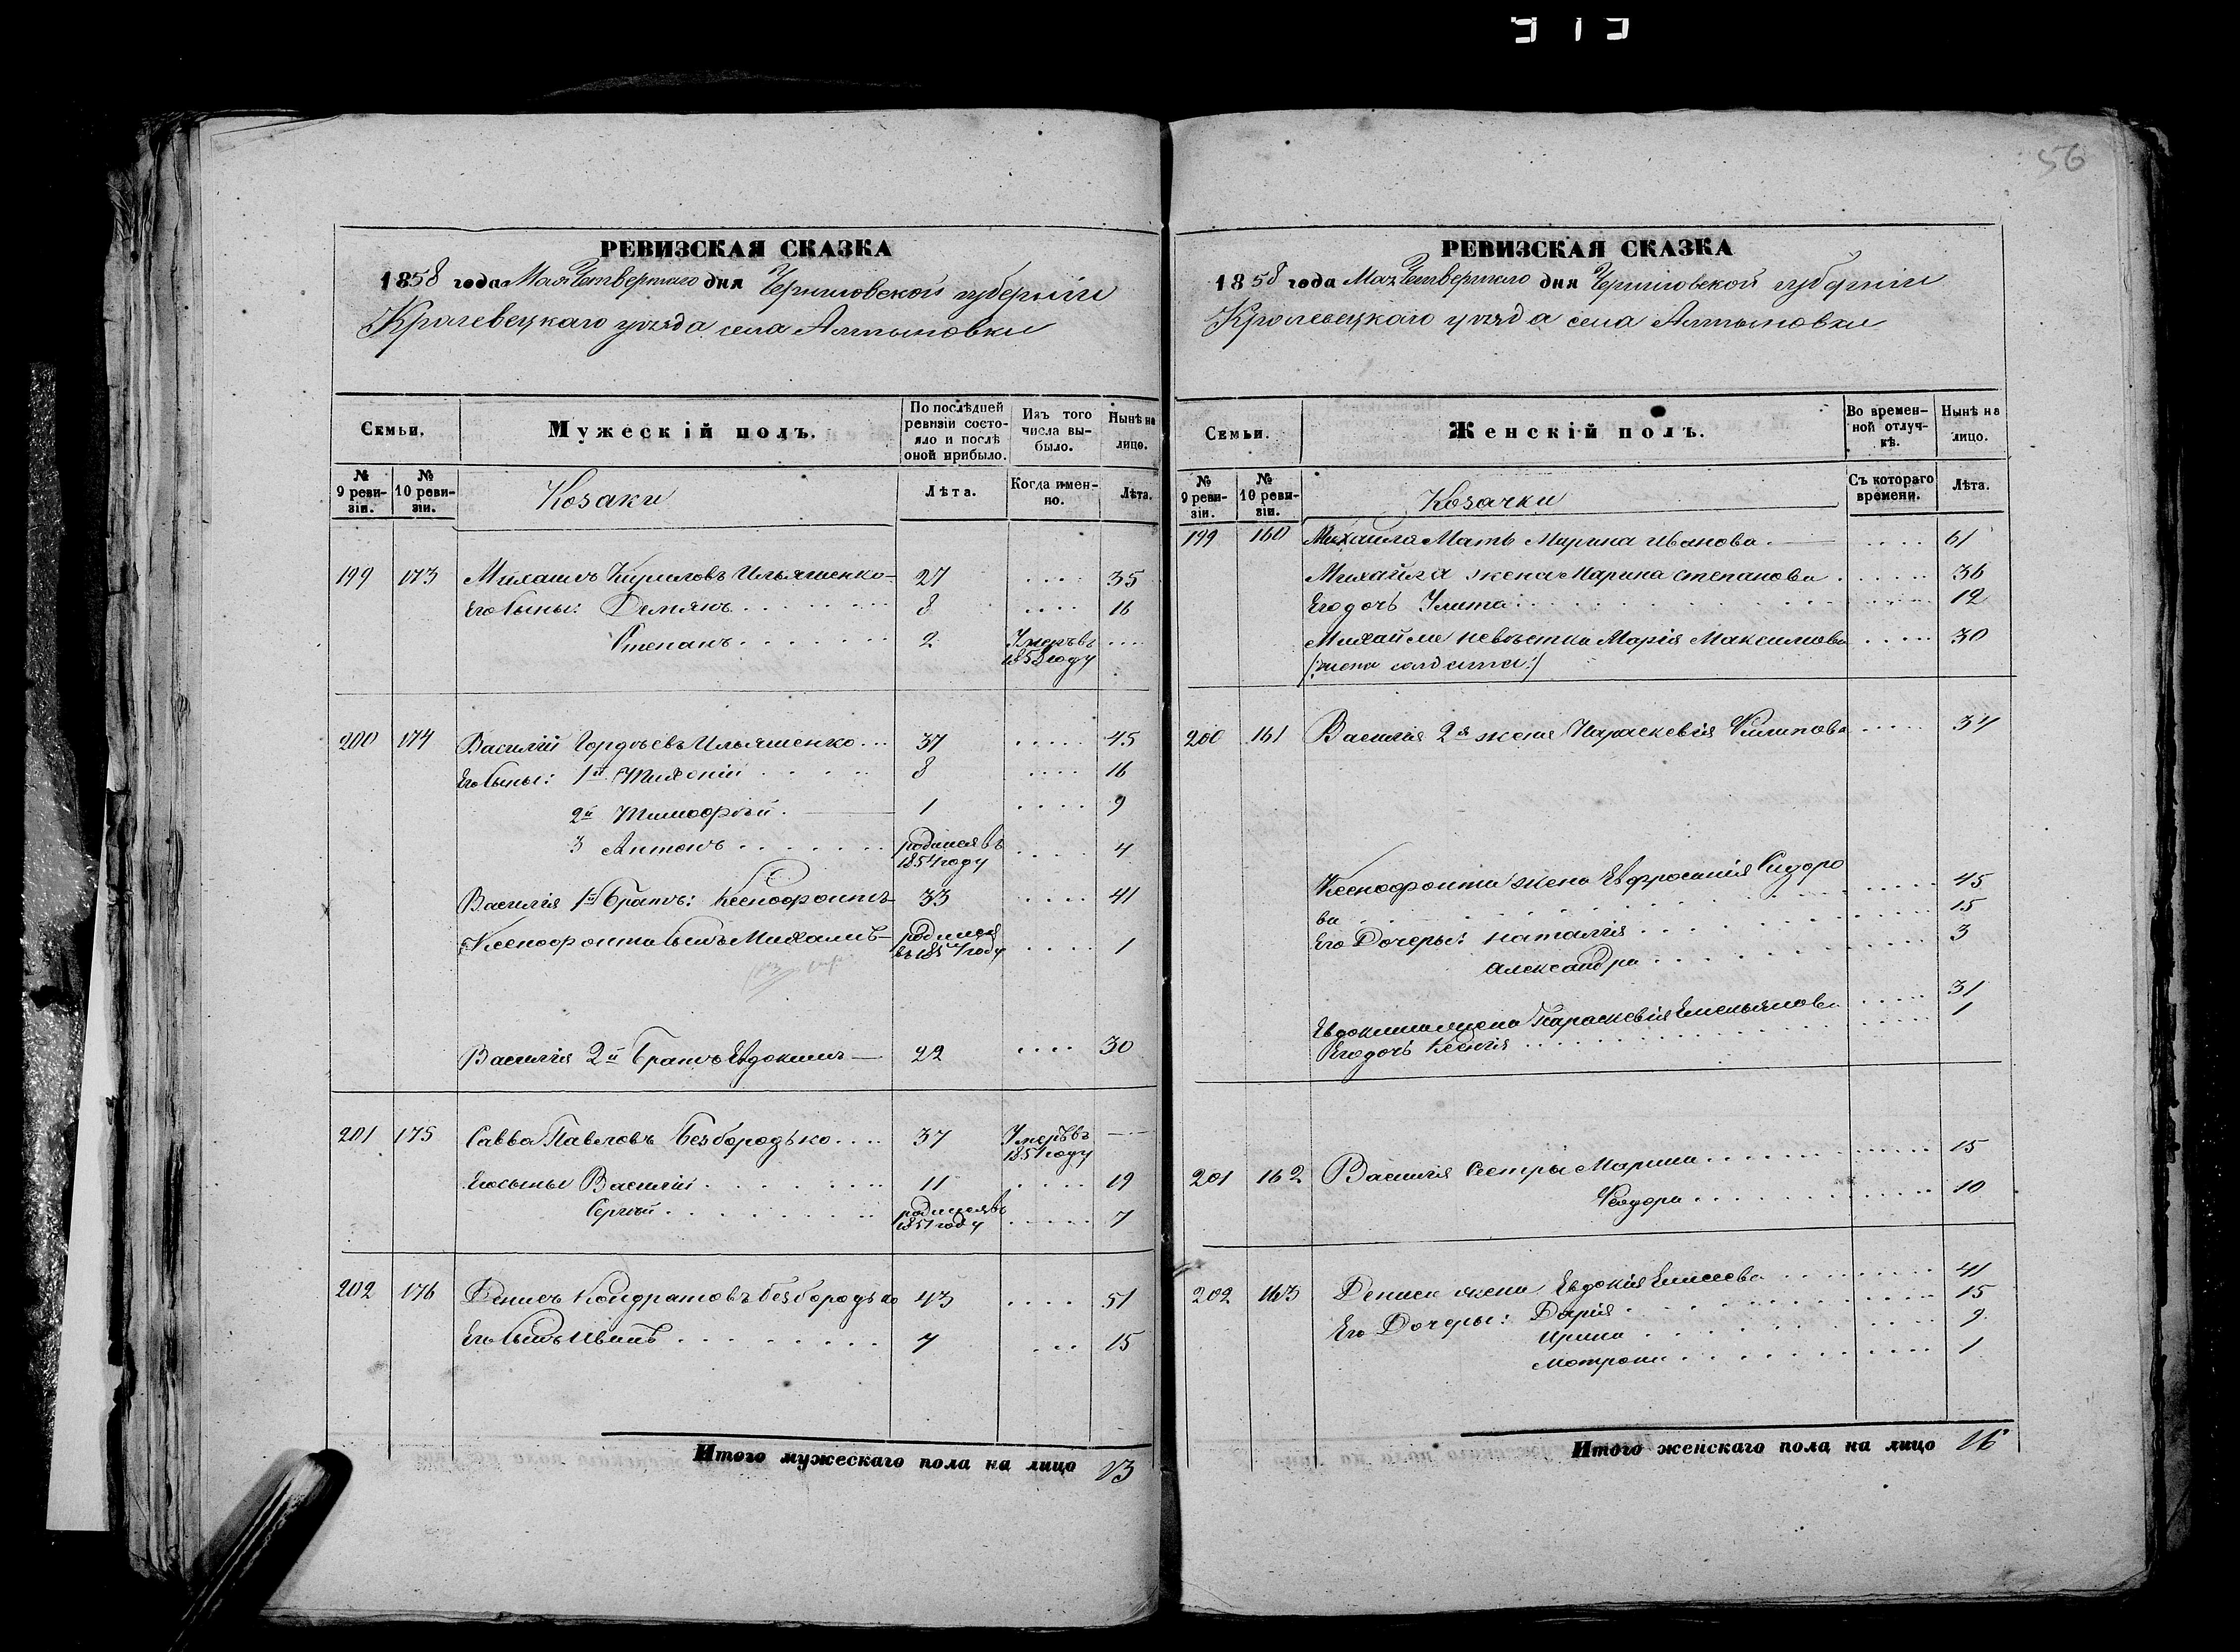 56
РЕВИЗСКАЯ СКАЗКА
1858 года Мая Четвертаго дня Черниговской губерніи
Кролевецкаго уѣзда села Алтыновки
Семьи.
Мужескій полъ.
По послѣдней ревизіи состояло и послѣ оной прибыло.
Изъ того числа выбыло.
Нынѣ на лицо.
№ 9 ревизіи.
№ 10 ревизіи.
Козаки
Лѣта.
Когда именно.
Лѣта.
199 173 Михаилъ Кириловъ Ильяшенко 27 .... 35
Его Сыны: Демянъ 8 .... 16
Степанъ 2 Умеръ въ ....
году
200 174 Василій Гордѣевъ Ильяшенко ... 37 ..... 45
Его Сыны: 1й Тихоній 8 .... 16
2й Тимофѣй 1 .... 9
3 Антонъ родился въ 1854 году .... 4
Василія 1й Братъ: Ксенофонтъ 33 .... 41
Ксенофонта Сынъ Михаилъ родился въ 1857 году .... 1
Василія 2й Братъ Евдокимъ 22 .... 30
201 175 Савва Павловъ Безбородько .... 37 Умеръ въ —
году
Его сыны Василій 11 .... 19
Сергѣй родился въ 1851 году ..... 7
202 176 Денисъ Кондратовъ Безбородько 43 .... 51
Его Сынъ Иванъ 7 ... 15
Итого мужескаго пола на лицо 13
РЕВИЗСКАЯ СКАЗКА
1858 года Мая Четвертаго дня Черниговской губерніи
Кролевецкаго уѣзда села Алтыновки
Семьи.
Женскій полъ.
Во временной отлучкѣ.
Нынѣ на лицо.
№ 9 ревизіи.
№ 10 ревизіи.
Козачки
Съ котораго времени.
Лѣта.
199 160 Михаила Мать Марина Иванова .... 61
Михайла жена Марина Степанова ..... 36
Его дочь Улита 12
Михайла невѣстка Марія Максимова ..... 30
(:жена солдата:)
200 161 Василія 2я жена Параскевія Филипова ..... 34
Ксенофонта жена Евфросинія Сидоро
ва 45
Его Дочеры: Наталія 15
Александра 3
Евдокима жена Параскевія Емельянова ..... 31
Его дочь Ксенія 1
201 162 Василія Сестры Марина 15
Феодора 10
202 163 Дениса жена Евдокія Елисеева 41
Его Дочеры: Дарія 15
Ирина 9
Мотрона 1
Итого женскаго пола на лицо 16